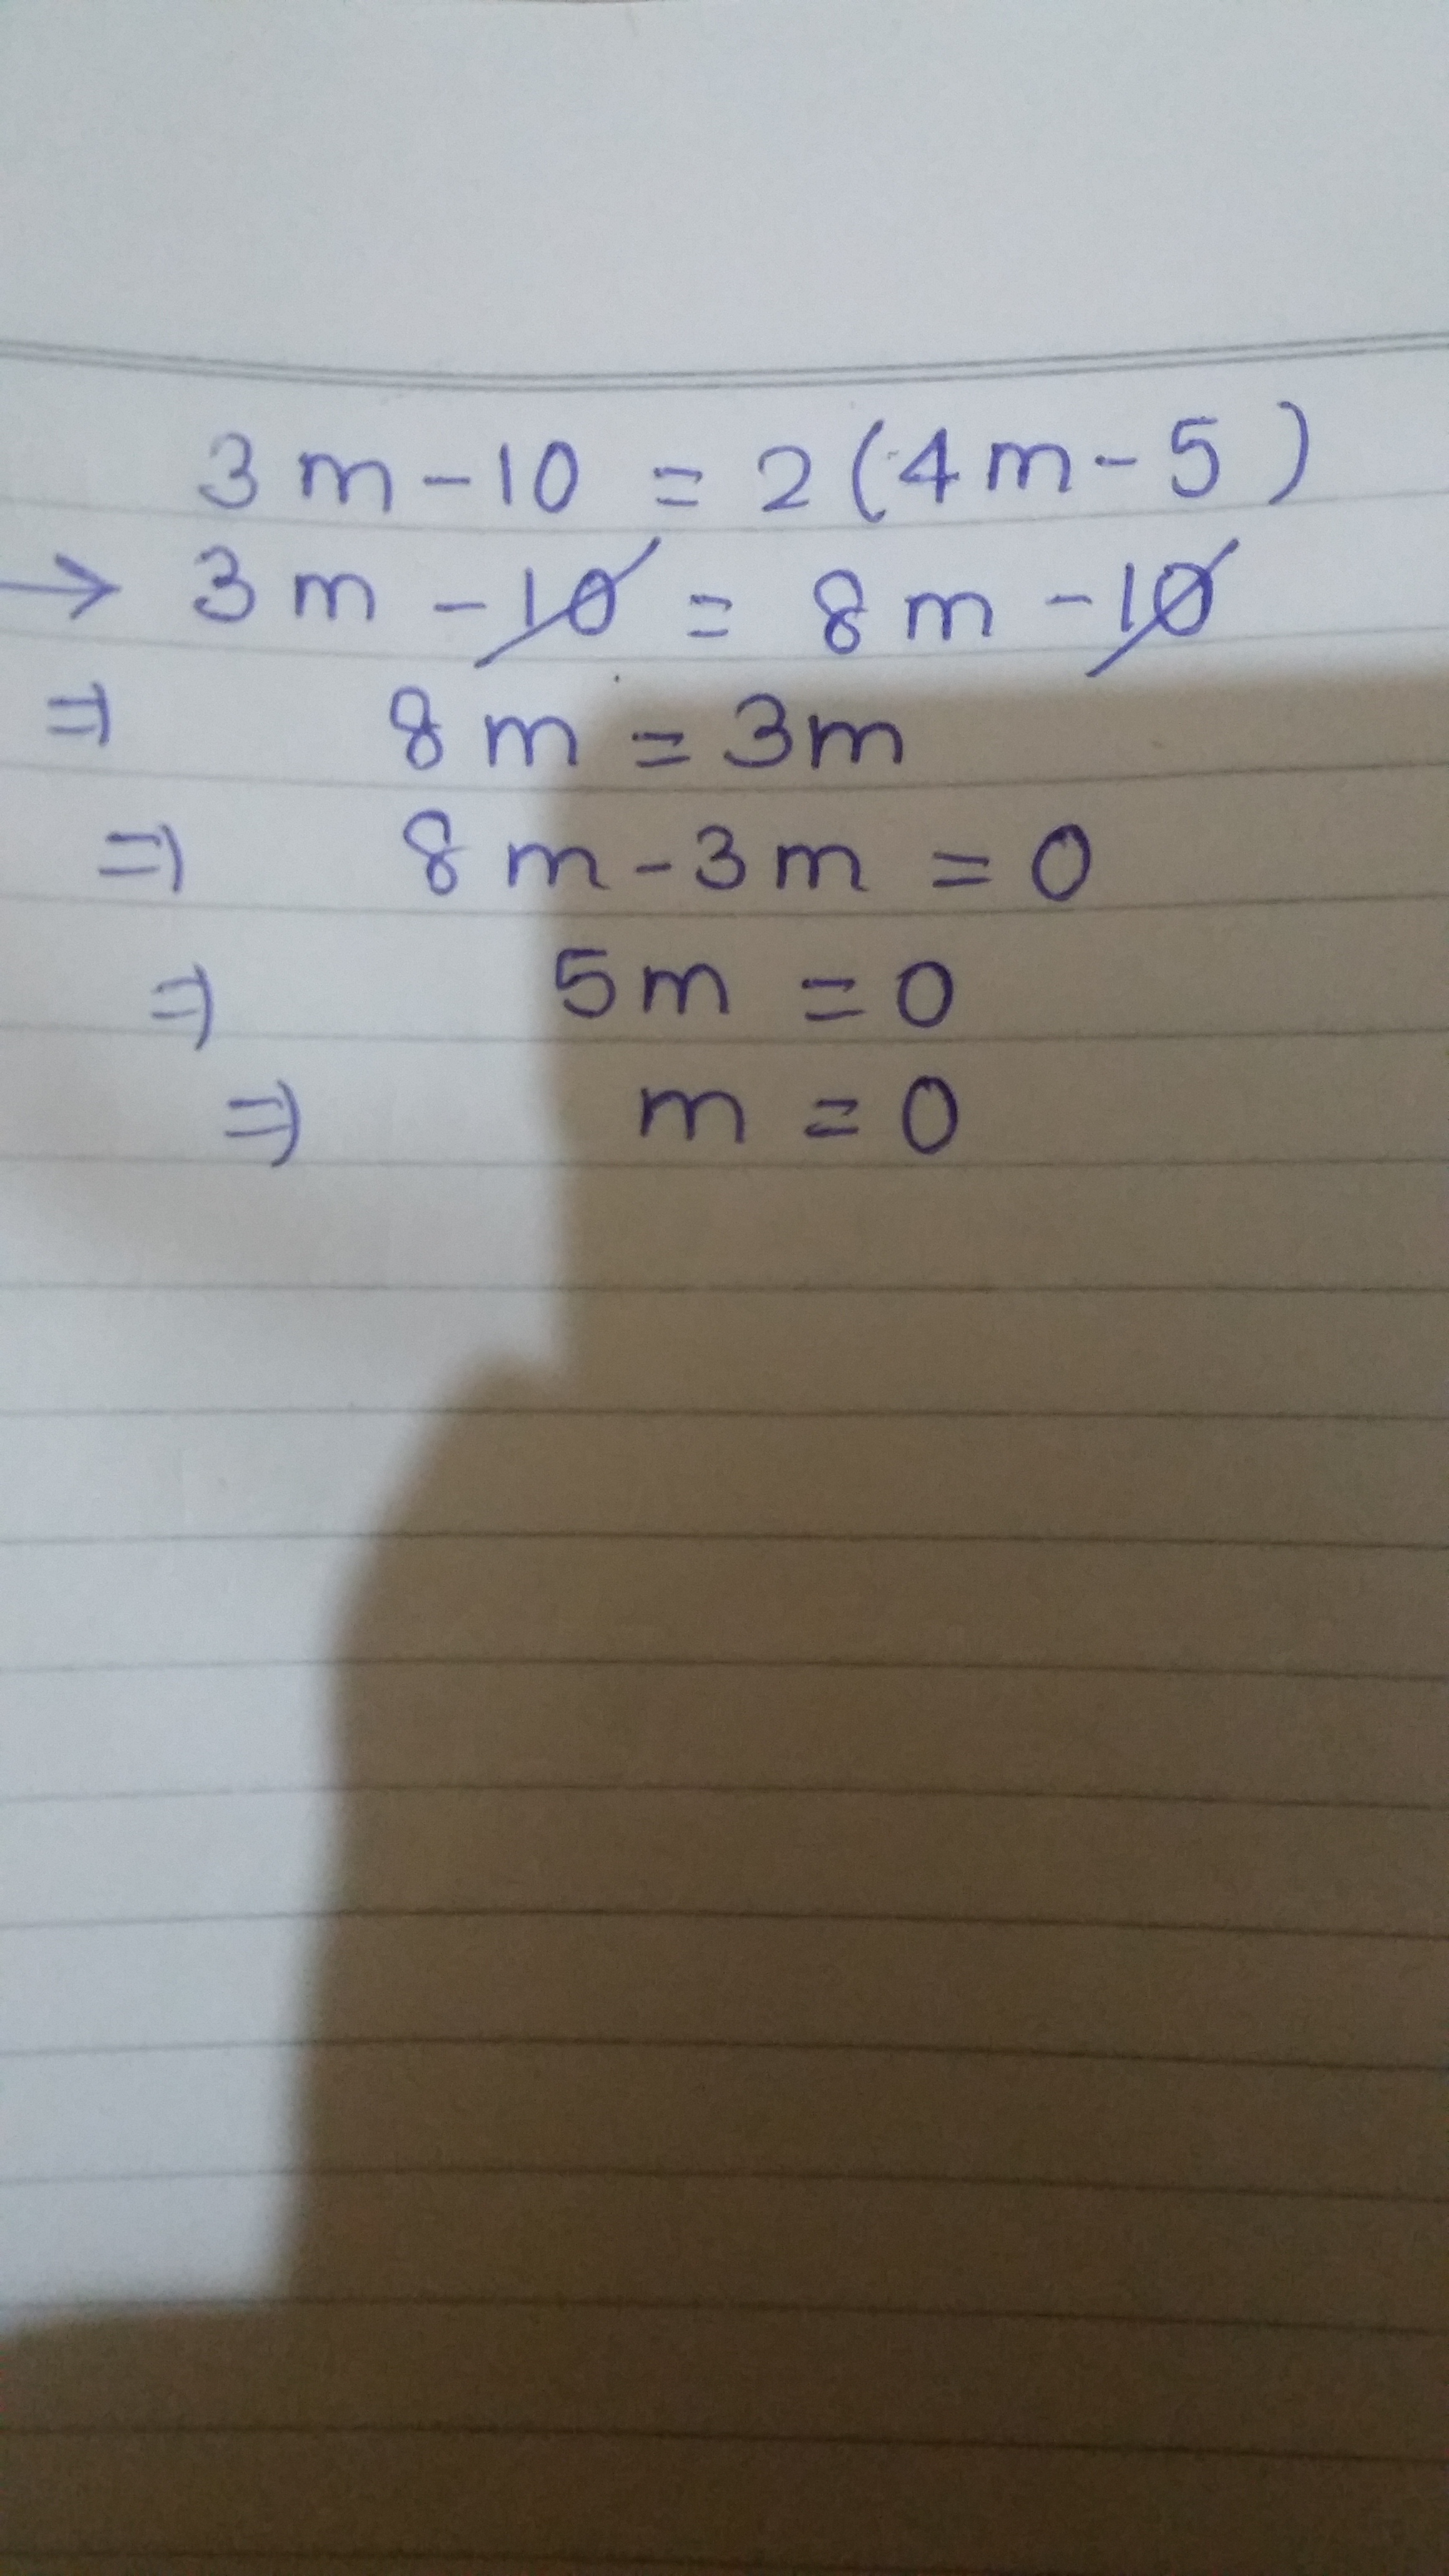 3m - 10 = 2(4m - 5)
→ 3m - 10 = 8m - 10
⇒ 8m = 3m
⇒ 8m - 3m = 0
⇒ 5m = 0
⇒ m = 0